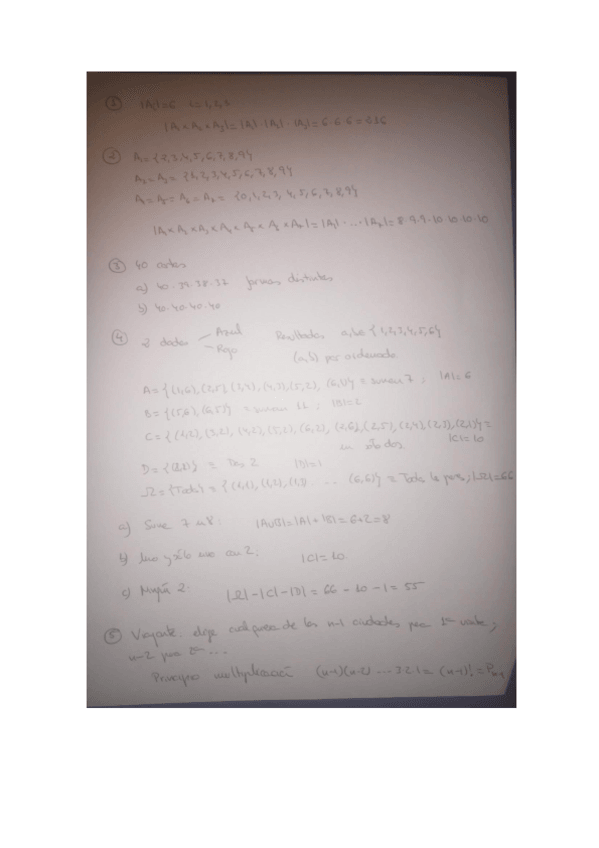 ① |Ai|=6 i=1,2,3
|A₁×A₂×A₃|=|A₁|·|A₂|·|A₃|=6·6·6=216
② A₁={2,3,4,5,6,7,8,9}
A₂=A₃= {1,2,3,4,5,6,7,8,9}
A₄=A₅=A₆=A₇= {0,1,2,3,4,5,6,7,8,9}
|A₁×A₂×A₃×A₄×A₅×A₆×A₇|=|A₁|·...·|A₇|=8·9·9·10·10·10·10
③ 40 cartas
a) 40·39·38·37 formas distintas
b) 40·40·40·40
④ 2 dados Azul Rojo Resultados a,b∈{1,2,3,4,5,6}
(a,b) par ordenado
A={(1,6),(2,5),(3,4),(4,3),(5,2),(6,1)} = suman 7; |A|=6
B={(5,6),(6,5)} = suman 11; |B|=2
C={(1,2),(3,2),(4,2),(5,2),(6,2),(2,6),(2,5),(2,4),(2,3),(2,1)}=
un sólo dos |C|=10
D={(2,2)} = Dos 2 |D|=1
Ω={Todos}={(1,1),(1,2),(1,3).... (6,6)} = Todos los pares; |Ω|=66
a) Sume 7 u 8: |A∪B|=|A|+|B|=6+2=8
b) Uno y sólo uno con 2: |C|=10
c) Ningún 2: |Ω|-|C|-|D|=66-10-1=55
⑤ Viajante: elige cualquiera de las n-1 ciudades para 1ª visita;
n-2 para 2ª...
Principio multiplicación (n-1)(n-2)...3·2·1=(n-1)!=Pₙ₋₁